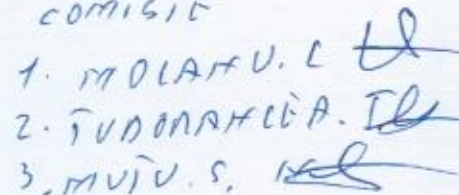 COMISIE
1. MOLANU. C
2. TUDORANCEA.
3. MUTU. S.